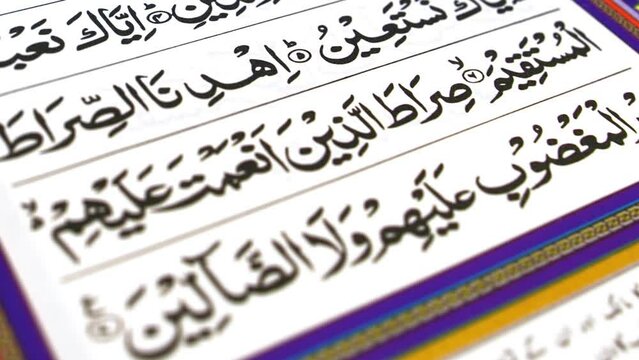 اِيَّاكَ نَعْبُ
اِيَّاكَ نَسْتَعِيْنُ ۝۵ اِهْدِنَا الصِّرَاطَ
الْمُسْتَقِيْمَ ۝۶ صِرَاطَ الَّذِيْنَ اَنْعَمْتَ عَلَيْهِمْ
الْمَغْضُوْبِ عَلَيْهِمْ وَلَا الضَّآلِّيْنَ ۝۷